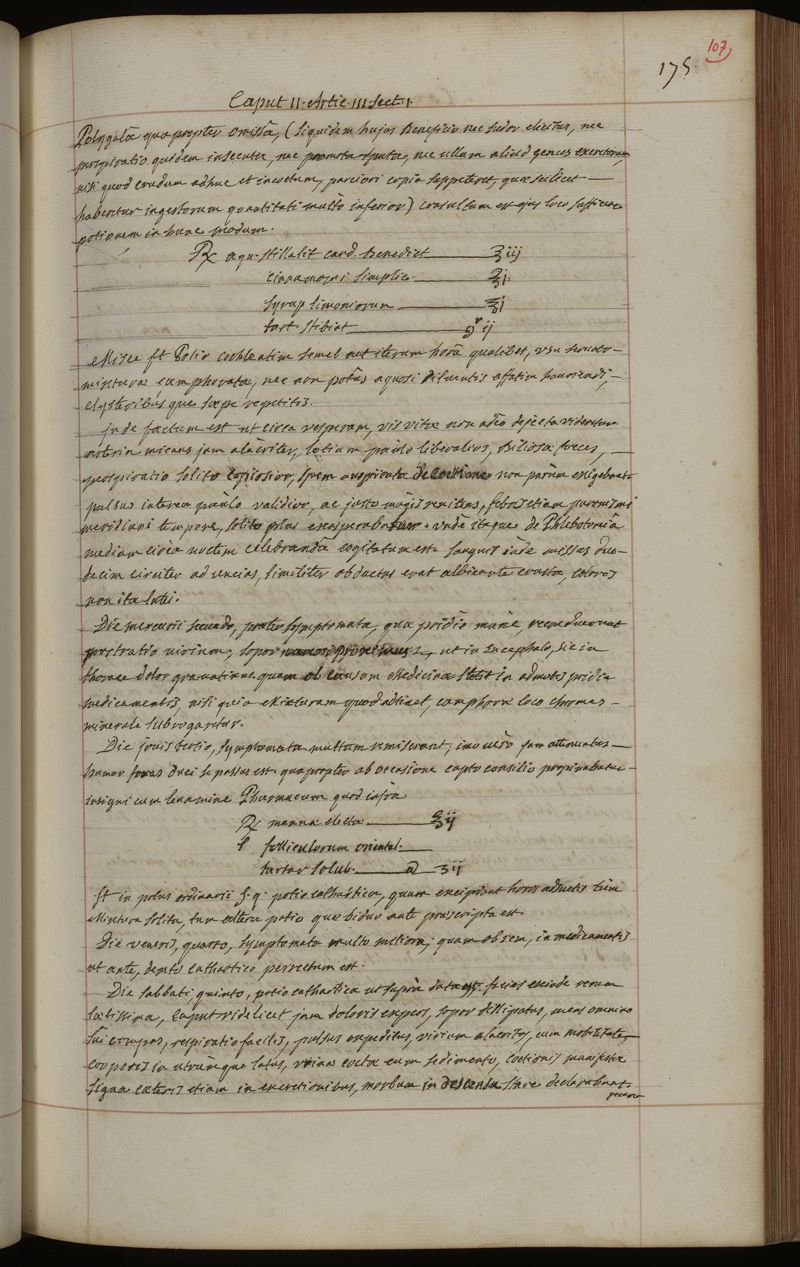 107
175
Caput II. Artic. III. Sect. I.
Polygala quapropter omissa, (siquidem hujus Beneficio nec sudor elicitus, nec
perspiratio quidem insecuta, nec promota sputa, nec ullum aliud genus excretorum
nisi quod crudum adhuc et incoctum, parciori copia suppeteret, quæ scilicet
haberetur ingestorum quantitati multo inferior) consultum est ejus loco sufficere
potionem in hunc modum.
℞ aqu. stillatit card. Benedict ℥ iij
cinnamomi simplic. ℥ j.
Syrup limoniorum ℥ j
tart stibiat gr ij
Misce ft Potio cochleatim semel aut iterum horâ qualibet, usu
mixtura camphorata, nec non potûs aquosi diluentis affatim
clysteribus que sæpe repetitis.
inde factum est ut circa vesperam, vis vitæ non adeo dejecta videretur
arteria micans jam alacriter, lotium paulo liberalius, Biliosa fæces,
perspiratio solito copiosior, spem auspicata de Coctione non parum exigebant
pulsus interea paulo validior, ac justo magis renitens, febris etiam
meridiani tempore, solito plus exasperabatur. unde itaque de Phlebotomiâ
mediam circa noctem celebrandâ cogitatum est. sanguis inde missus duo-
decim circiter ad uncias, similiter obductus erat albicante crusta, coloris
non ita lutei.
Die mercurii secundo, præter symptomata, quæ pridie mane,
prostratio virium, sopor ut in encephalo, sic in
thorace dolor gravativus. quam ob causam Medicina stetit in admotis pridie
medicamentis, nisi quia Mixturam quod attinet, camphoræ loco chermes
minerale subrogaretur.
Die jovis tertio, symptomata multum remiserant, imo vero jam attenuatus
humor foras duci se passus est. quapropter ab occasione capto consilio
insigni cum levamine Pharmacum quod infra
℞ manna electa ℥ ij
folliculorum oriental.
tartar solub. a ʒ ij
ft in potus ordinarii q. potio cathartica, quam excipiant horis adductis tum
Mixtura solita, tum altera potio quæ biduo ante præscripta est.
Die veneris, quarto, symptomata multo mitiora; quam ob rem, in medicamentis
ut ante, dempto cathartico perrectum est.
Die sabbati quinto, potio cathartica ut supra data est. facies exinde rerum
lætissima, Caput videlicet jam doloris expers, sopor dissipatus, mens omnino
sui compos, respiratio facilis, pulsus expeditus, virium alacritas, cum mobilitate
corporis in utrumque latus, urina cocta cum sedimento, coctionis manifesta
signa cæteris etiam in excretionibus, morbum in descensu stare declarabant.